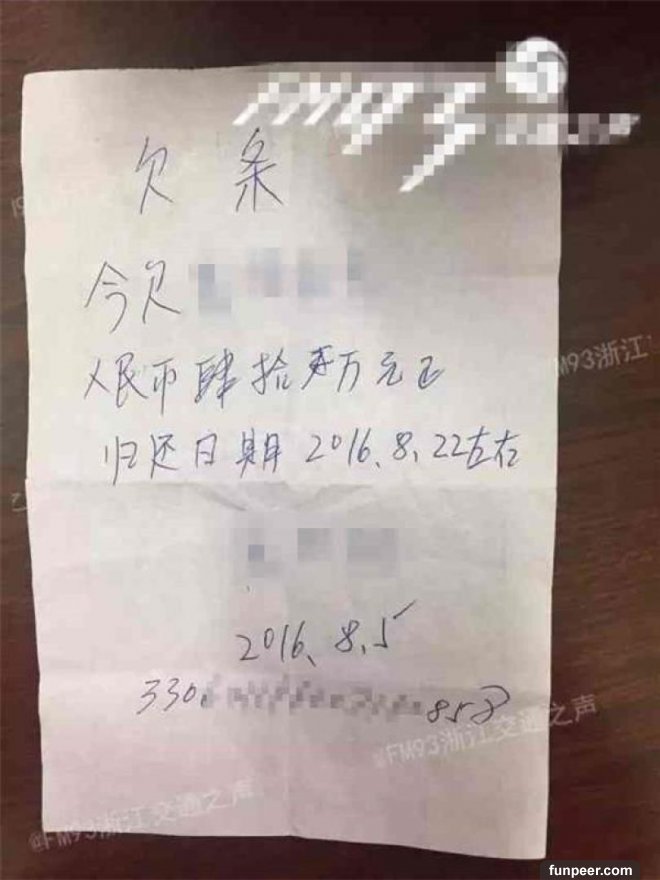 FM93
欠 条
今欠
M93浙江
人民币肆拾万元正
归还日期 2016、8、22左右
2016、8、5
330 853
@FM93浙江交通之声
@FM93浙江交通之声
funpeer.com